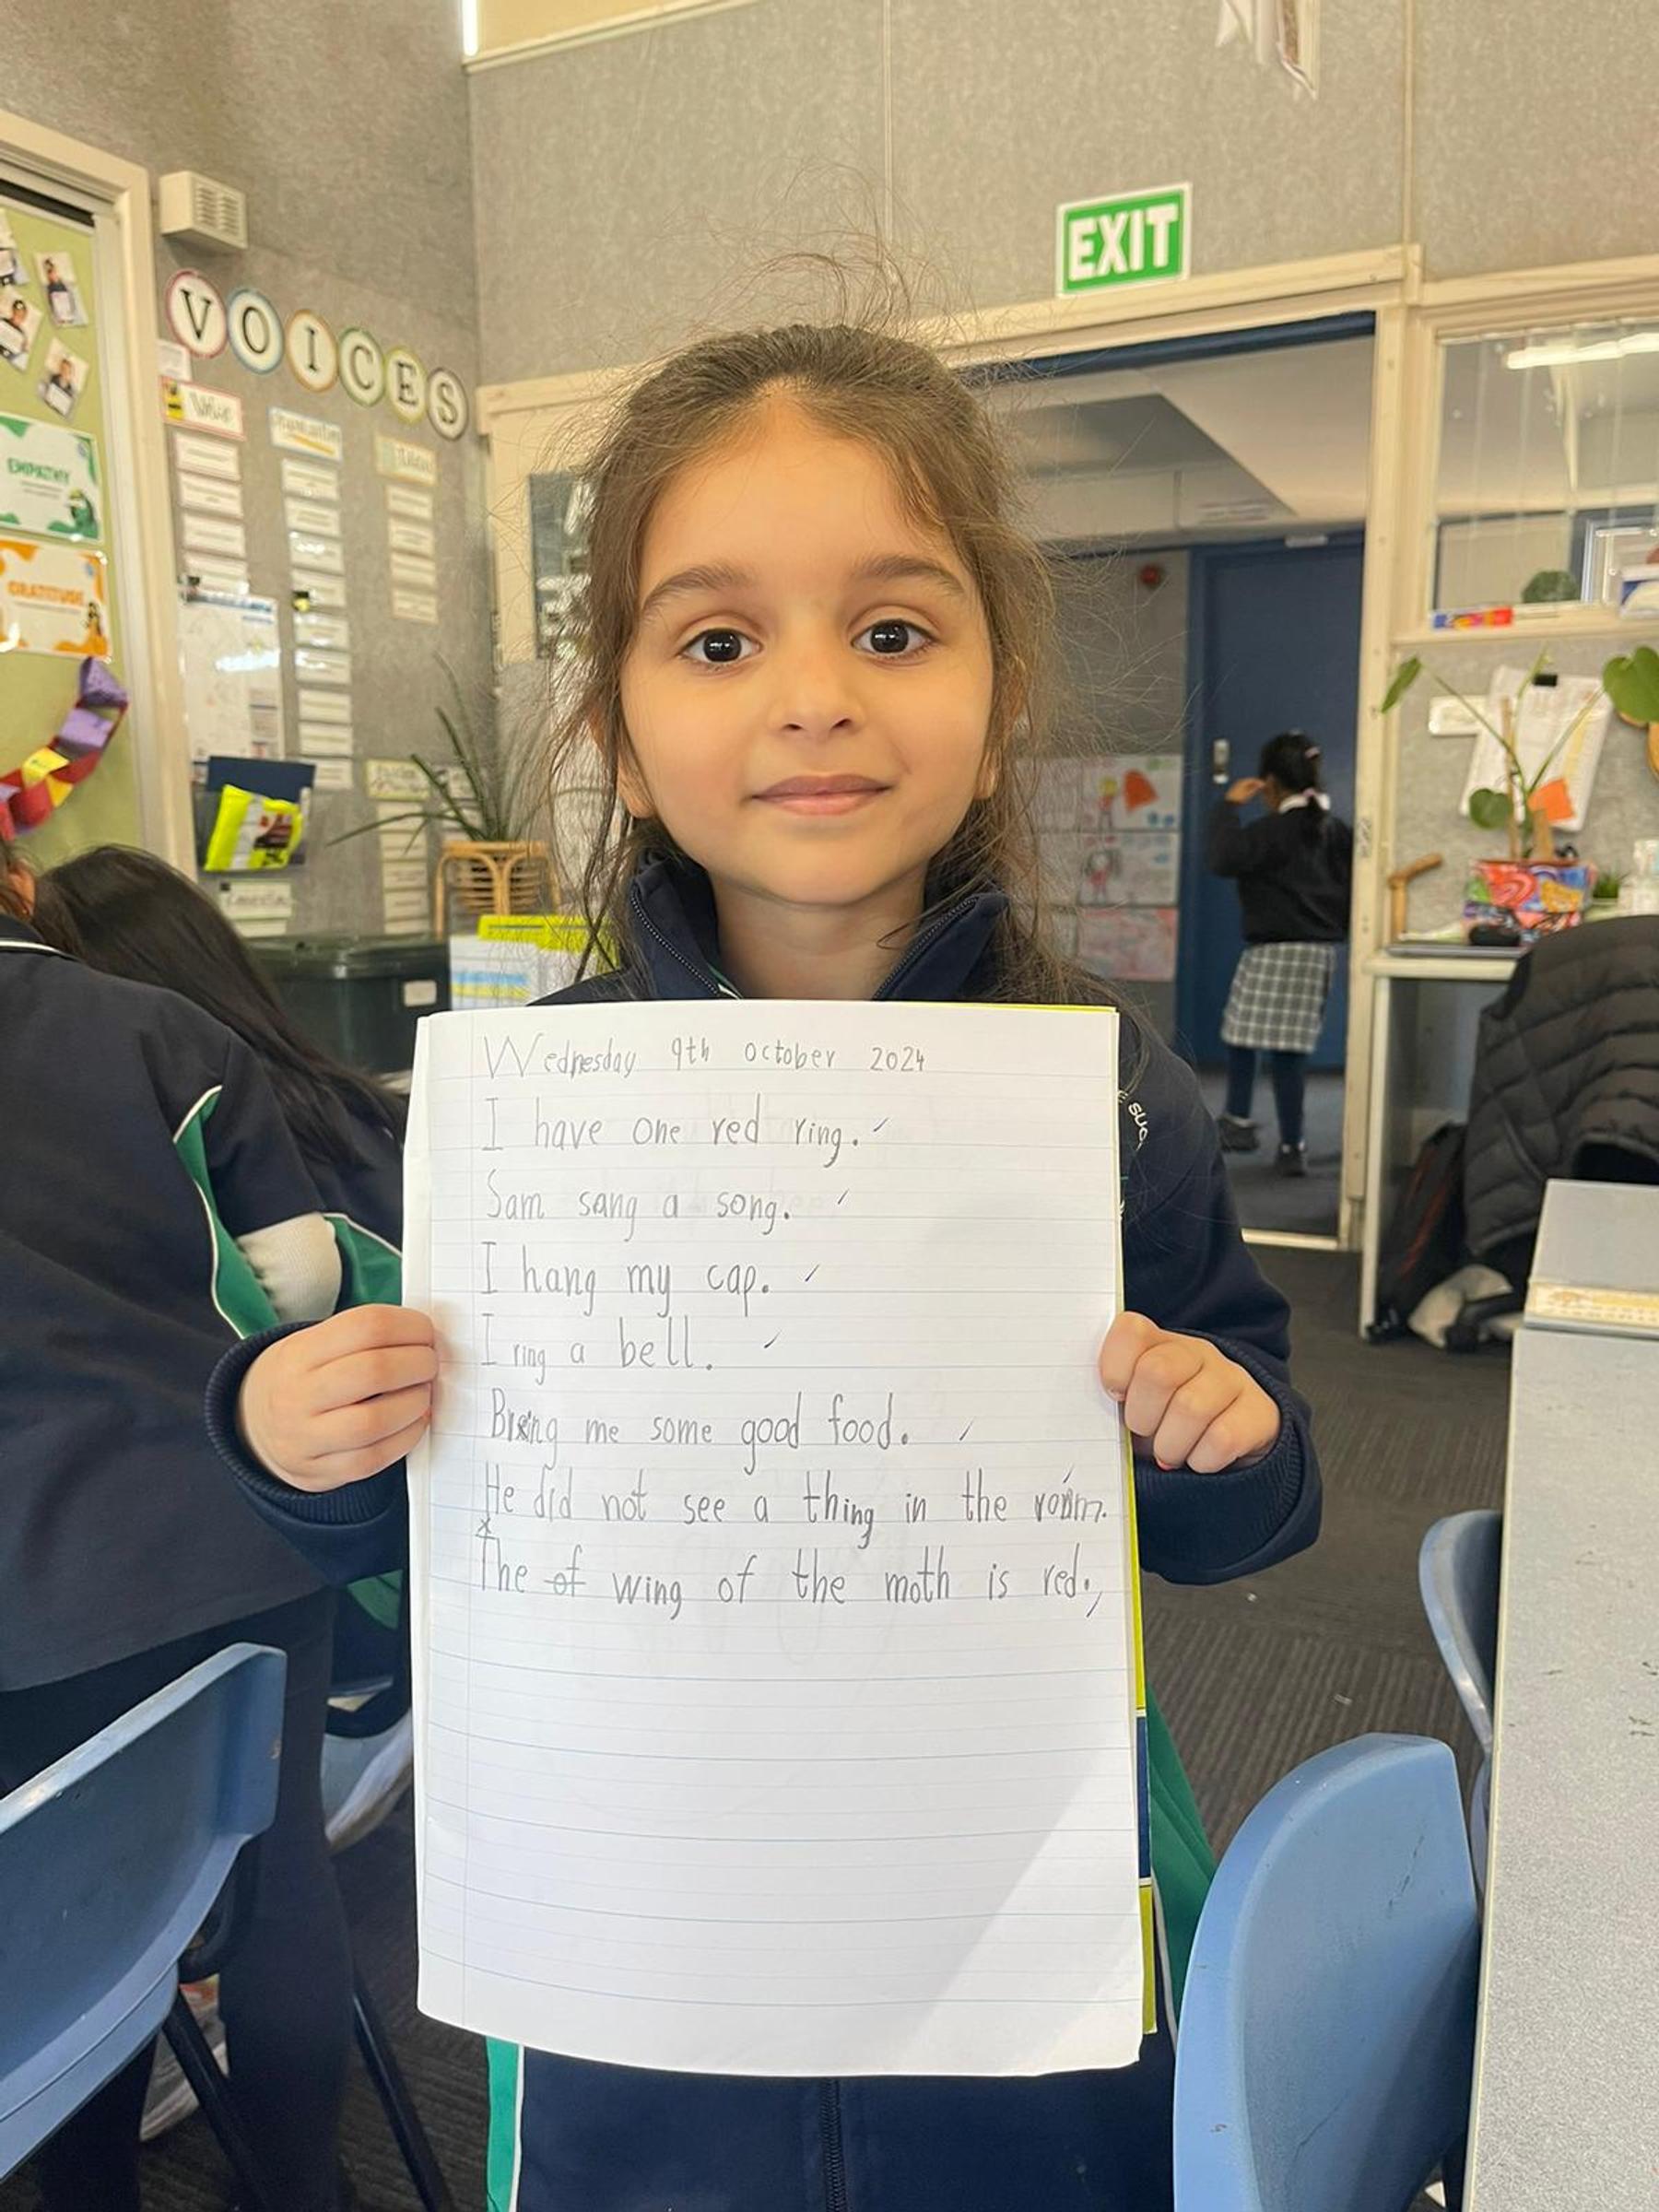 EXIT
VOICES
EMPATHY
GRATITUDE
Wednesday 9th October 2024
I have one red ring.
Sam sang a song.
I hang my cap.
I ring a bell.
Bring me some good food.
He did not see a thing in the room.
The of wing of the moth is red.